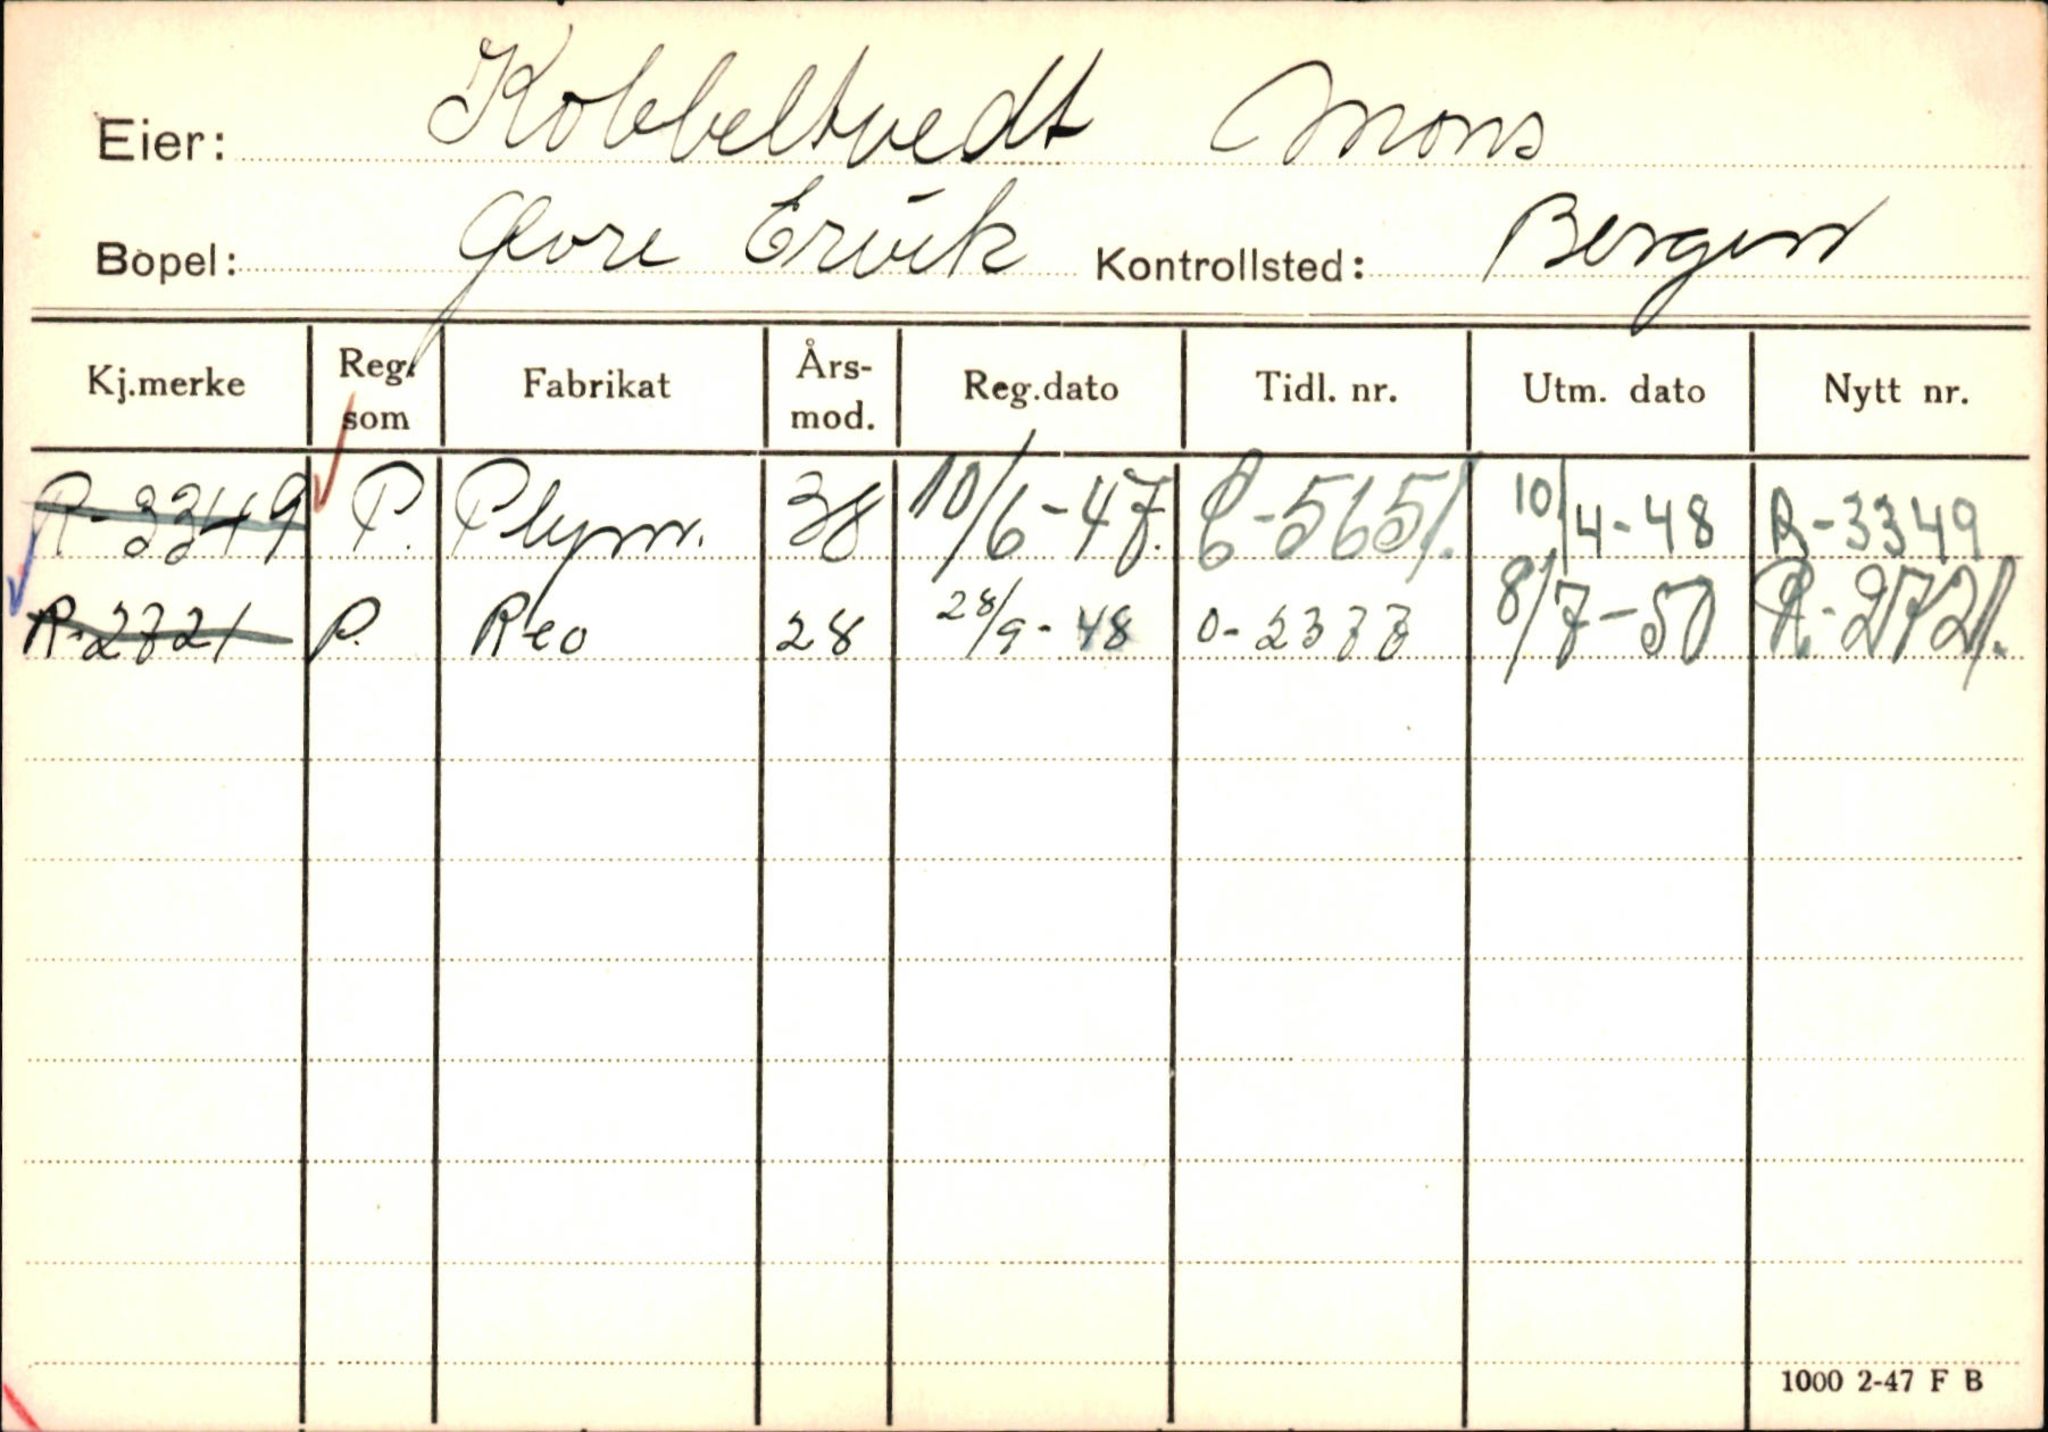 Eier: Kobbeltvedt Mons
Bopel: Øvre Ervik Kontrollsted: Bergen
Kj.merke Reg. som Fabrikat Års- mod. Reg.dato Tidl. nr. Utm. dato Nytt nr.
R-3349 P. Plym. 38 10/6-47. C-5651. 10/4-48 R-3349
R-2721 P. Reo 28 28/9-48 O-2377 8/7-50 R-2721.
1000 2-47 F B